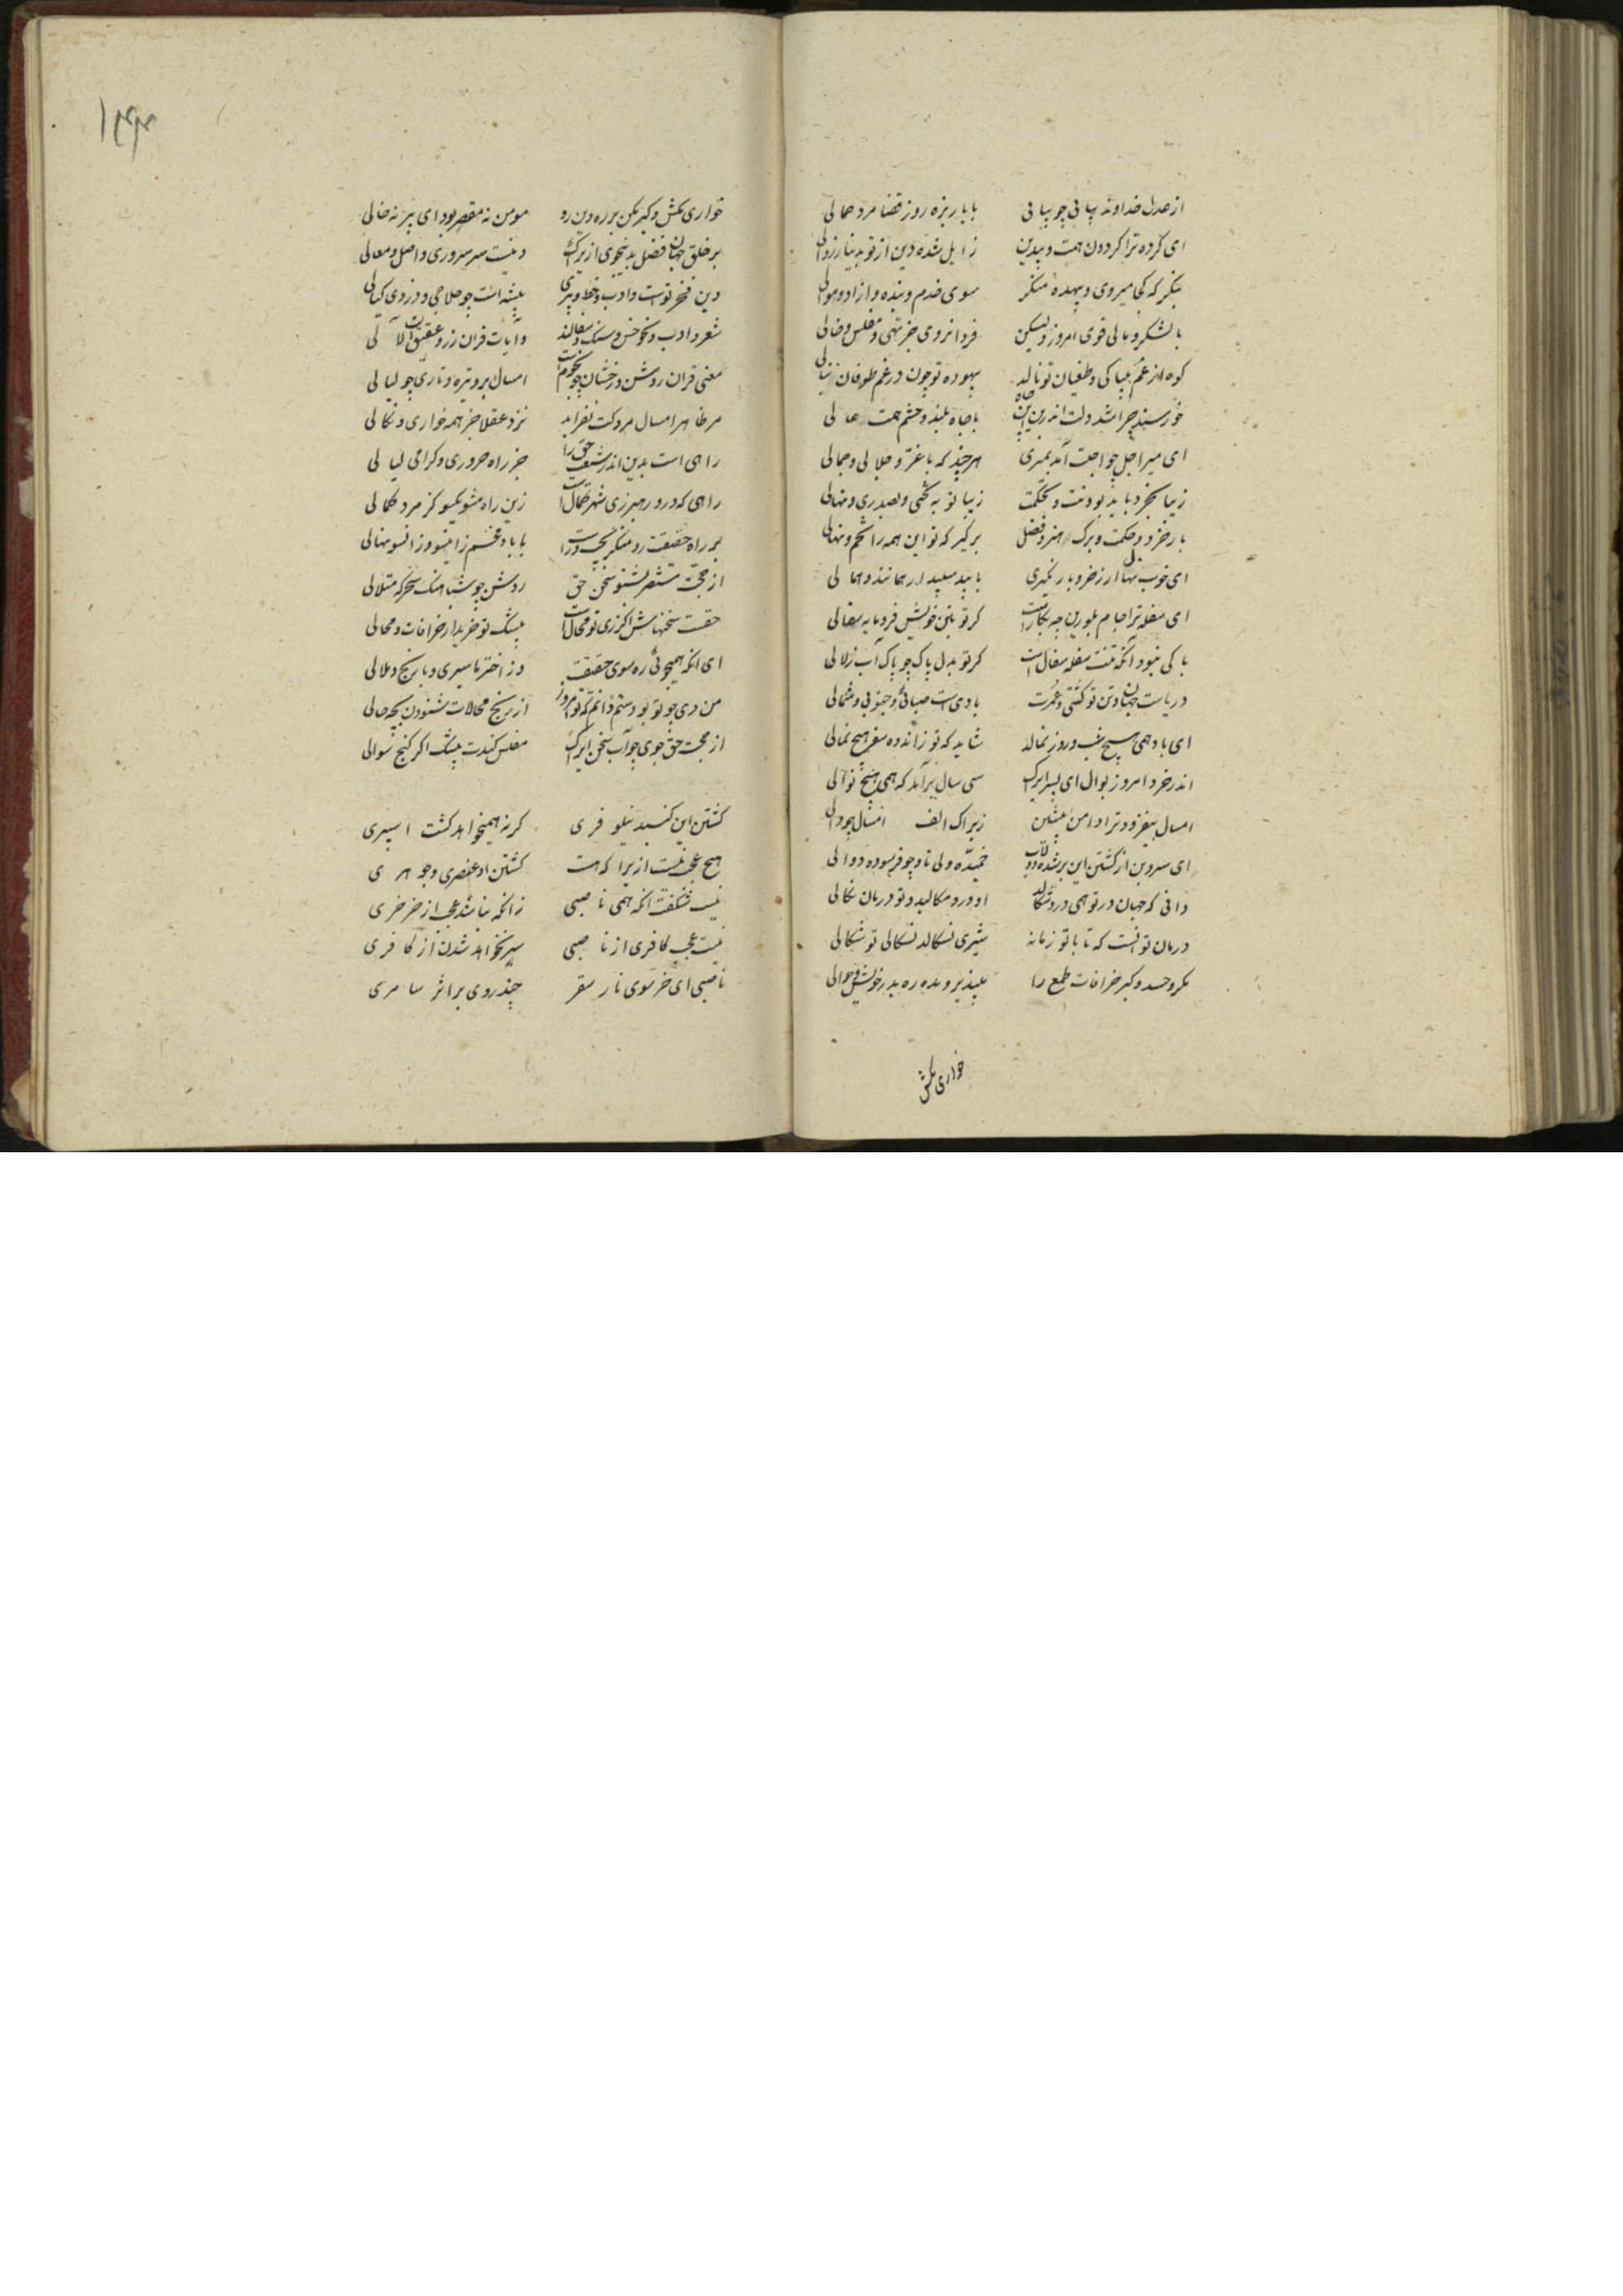 از عدل خداوند بیابی چو بیابی با بار بزه روز قضا مرد حمالی
ای کرده ترا کردون همت و بیدین زایل شده دین از تو بدنیا زوالی
بنکر که کجا میروی و بیهده منکر سوی خدم و بنده و ازاد و موالی
بالشکر و مالی قوی امروز ولیکن فردا نروی جز تهی و مفلس و خالی
کوه از غم بیباکی و طغیان تو نالد بیهوده تو چون در غم طوفان
خورسند چرا شد دلت اندرین چاه با جاه بلند و حشم همت عالی
ای میر اجل چون اجلت آمد بمیری هرچند که با عز و جلالی و جمالی
زیبا بخرد باید بودنت و بحکمت زیبا تو به تختی و بصدری و نهالی
بار خرد و حکمت و برک هنر و فضل برکیر که تو این همه را تخم و نهالی
ای خوب نهال ار ز خرد بار نکیری با بید و سپیدار همانند و همالی
ای سفله ترا جام بلورین چه بکارست کر تو بتن خویش فرومایه سفالی
باکی نبود آنکه تنت سفله سفال است کر تو بدل پاک چو پاک آب زلالی
دریاست جهان و تن تو کشتی و عمرت بادی است صبائی و جنوبی و شمالی
ای باد همی هیچ شب و روز نمالد شاید که تو ز اندوه سفر هیچ نمالی
اندر خرد امروز بوال ای پسر ایراک سی سال برآمد که همی هیچ نوالی
امسال بیفزود ترا دامن پیشین زیراک الف امسال چو دالی
ای سروبن از کشتن این برشده دولاب خمیده ولی تا و چو فرسوده دوالی
دانی که جهان در تو همی درد سکالد او درد سکالید و تو درمان نکالی
درمان تو انست که تا با تو زمانه شیری نسکالد نسکالی تو شکالی
مکر و حسد و کبر خرافات طمع را بپذیر و مده ره بدر خویش و حوالی
خواری مکش
۱۴۳
خواری مکش و کبر مکن بر ره دین رو مومن نه مقصر بود ای پیر نه خالی
بر خلق جهان فضل بدین جوی ازیراک دینست سر سروری و اصل و معالی
دین فخر تو است و ادب و خط و دبیری پیشه است چو حلاجی و درزی و کیالی
شعر و ادب و نحو خس و سنک و سفالند و آیات قران زر و عقیق است و لآلی
معنی قران روشن و رخشان چو نجوم است امسال برو تیره و تاری چو لیالی
مر ظاهر امسال مر دکت نفزاید نزد عقلا جز همه خواری و نکالی
راهی است بدین اندر شیعت حق را جز راه حروری و کرامی لیالی
راهی که درو رهبر زی شهر کمال است زین راه مشو یکسو کر مرد کمالی
بر راه حقیقت رو منکر بچپ و راست با باد مچم زاینسو و زانسو نهالی
از حجت مستنصر بشنو سخن حق روشن چو شباهنک سحرکه متلالی
حقست سخنهاش اکر زی تو محال است بیشک تو خریدار خرافات و محالی
ای انکه همیجوئی ره سوی حقیقت وز اختر ناسیری و با رنج و ملالی
من دی چو تو بودستم دانم که تو امروز از رنج محالات شنودن بچه حالی
از حجت حق جوی جواب سخن ایراک مفلس کندت بیشک اکر کنج سوالی
کشتن این کنبد نیلوفری کر نه همیخواهد کشت اسپری
هیچ عجب نیست ازیرا که هست کشتن او عنصری و جوهری
نیست شکفت انکه همی ناصبی زانکه نباشد عجب از خر خری
نیست عجب کافری از ناصبی سیر نخواهد شدن از کافری
ناصبی ای خر سوی نار سقر چند روی بر اثر سامری